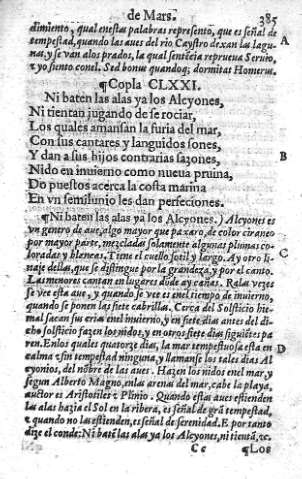 de Mars. 385
dimiento, qual enestas palabras represento, que es señal de
tempestad, quando las aues del rio Caystro dexan las lagu- A
nas, y se van alos prados, la qual sentẽcia reprueua Seruio,
ꝛ yo siento conel. Sed bonus quandoq; dormitat Homerus.
¶Copla CLXXI.
Ni baten las alas ya los Alcyones,
Ni tientan jugando de se rociar,
Los quales amansan la furia del mar,
Con sus cantares y languidos sones,
Y dan a sus hijos contrarias sazones, B
Nido en inuierno como nueua pruina,
Do puestos acerca la costa marina
En vn semilunio les dan perfeciones.
¶Ni baten las alas ya los Alcyones.) Alcyones es
vn genero de aue, algo mayor que paxaro, de color cianeo
por mayor parte, mezcladas solamente algunas plumas co-
loradas y blancas. Tiene el cuello sotil y largo. Ay otro li- C
naje dellas, que se distingue por la grandeza, y por el canto.
Las menores cantan en lugares dõde ay cañas. Raras vezes
se vee esta aue, y quando se vee es enel tiempo de inuierno,
quando se ponen las siete cabrillas. Cerca del Solsticio hie-
mal sacan sus crias enel inuierno, y en siete dias antes del di-
cho solsticio fazen los nidos, y en otros siete dias siguiẽtes pa
ren. Enlos quales quatorze dias, la mar tempestuosa esta en D
calma ꝛ sin tempestad ninguna, y llamanse los tales dias Al
cyonios, del nõbre de las aues. Hazen los nidos enel mar, y
segun Alberto Magno, enlas arenas del mar, cabe la playa,
auctor es Aristotiles ꝛ Plinio. Quando estas aues estienden
las alas hazia el Sol en la ribera, es señal de grã tempestad,
ꝛ quando no las estienden, es señal de serenidad. E por tanto
dize el conde: Ni batẽ las alas ya los Alcyones, ni tientã, ꝛc.
Cc ¶Los